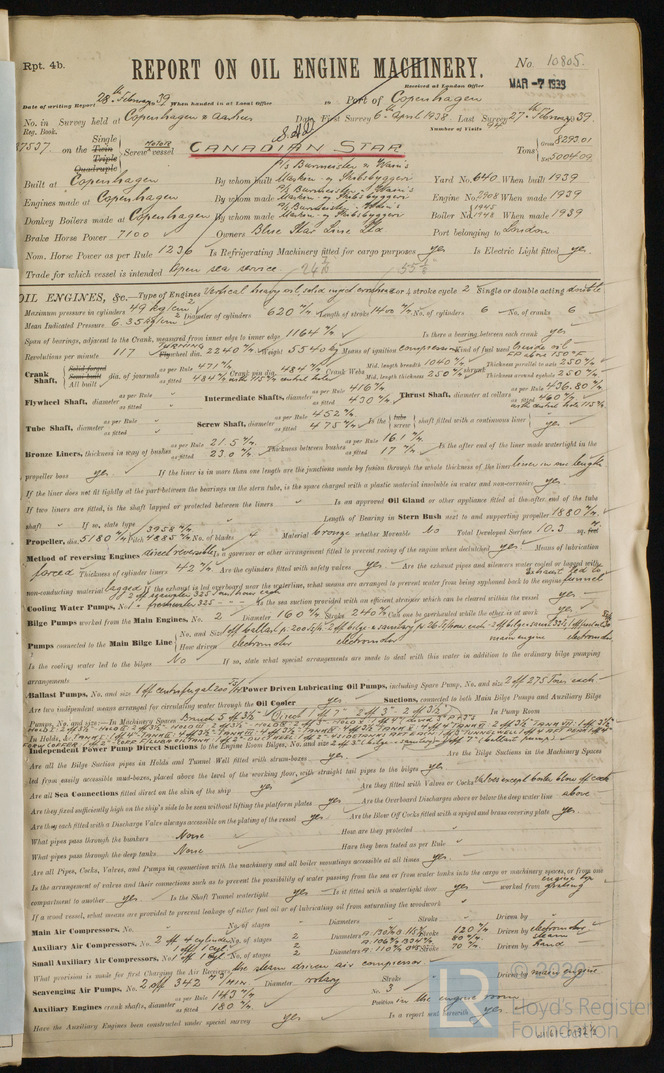 Rpt. 4b.
No. 10805.
REPORT ON OIL ENGINE MACHINERY.
Received at London Office MAR -7 1939
Date of writing Report 28th February 39 When handed in at Local Office Port of Copenhagen
No. in Survey held at Copenhagen & Aarhus Date, First Survey 6th April 1938. Last Survey 27th February 1939.
Reg. Book. Number of Visits
37537 on the Single Twin Triple Quadruple Screw vessel MOTOR CANADIAN STAR Tons Gross 8293.01 Net 5004.09
Built at Copenhagen By whom built A/S Burmeister & Wain's Maskin- og Skibsbyggeri Yard No. 640 When built 1939
Engines made at Copenhagen By whom made A/S Burmeister & Wain's Maskin- og Skibsbyggeri Engine No. 2908 When made 1939
Donkey Boilers made at Copenhagen By whom made A/S Burmeister & Wain's Maskin- og Skibsbyggeri Boiler No. 1945 1948 When made 1939
Brake Horse Power 7100 Owners Blue Star Line Ltd Port belonging to London
Nom. Horse Power as per Rule 1236 Is Refrigerating Machinery fitted for cargo purposes yes Is Electric Light fitted yes
Trade for which vessel is intended Open sea service
OIL ENGINES, &c.—Type of Engines Vertical heavy oil, solid inject. 2 or 4 stroke cycle 2 Single or double acting double
Maximum pressure in cylinders 49 kg/cm2 Diameter of cylinders 620 m/m Length of stroke 1400 m/m No. of cylinders 6 No. of cranks 6
Mean Indicated Pressure 6.35 kg/cm2
Span of bearings, adjacent to the Crank, measured from inner edge to inner edge 1164 m/m Is there a bearing between each crank yes
Revolutions per minute 117 Flywheel dia. 2240 m/m Weight 5540 kg Means of ignition compression Kind of fuel used crude oil FP above 150°F
Crank Shaft, Solid forged Semi built All built dia. of journals as per Rule 471 m/m as fitted 484 m/m with 115 m/m central hole Crank pin dia. 484 m/m Crank Webs Mid. length breadth 1040 m/m Mid. length thickness 250 m/m Thickness parallel to axis 250 m/m Thickness around eyehole 250 m/m
Flywheel Shaft, diameter as per Rule as fitted Intermediate Shafts, diameter as per Rule 416 m/m as fitted 430 m/m Thrust Shaft, diameter at collars as per Rule 436.80 m/m as fitted 460 m/m with central hole 115 m/m
Tube Shaft, diameter as per Rule as fitted Screw Shaft, diameter as per Rule 452 m/m as fitted 475 m/m Is the tube screw shaft fitted with a continuous liner yes
Bronze Liners, thickness in way of bushes as per Rule 21.5 m/m as fitted 23.0 m/m Thickness between bushes as per Rule 16.1 m/m as fitted 17 m/m Is the after end of the liner made watertight in the
propeller boss yes If the liner is in more than one length are the junctions made by fusion through the whole thickness of the liner liner in one length
If the liner does not fit tightly at the part between the bearings in the stern tube, is the space charged with a plastic material insoluble in water and non-corrosive yes
If two liners are fitted, is the shaft lapped or protected between the liners " Is an approved Oil Gland or other appliance fitted at the after end of the tube
shaft " If so, state type " Length of Bearing in Stern Bush next to and supporting propeller 1880 m/m
Propeller, dia. 5180 m/m Pitch 3958 m/m 4885 m/m No. of blades 4 Material bronze whether Moveable No Total Developed Surface 10.3 sq. feet
Method of reversing Engines direct reversible Is a governor or other arrangement fitted to prevent racing of the engine when declutched yes Means of lubrication
forced Thickness of cylinder liners 42 m/m Are the cylinders fitted with safety valves yes Are the exhaust pipes and silencers water cooled or lagged with
non-conducting material lagged If the exhaust is led overboard near the waterline, what means are arranged to prevent water from being syphoned back to the engine exhaust led to funnel
Cooling Water Pumps, No. Is the sea suction provided with an efficient strainer which can be cleared within the vessel yes
Bilge Pumps worked from the Main Engines, No. 2 Diameter 160 m/m Stroke 240 m/m Can one be overhauled while the other is at work yes
Pumps connected to the Main Bilge Line No. and Size How driven electromotor electromotor main engine electromotor
Is the cooling water led to the bilges No If so, state what special arrangements are made to deal with this water in addition to the ordinary bilge pumping
arrangements
Ballast Pumps, No. and size Power Driven Lubricating Oil Pumps, including Spare Pump, No. and size 2 off 275 T/m each
Are two independent means arranged for circulating water through the Oil Cooler yes Suctions, connected to both Main Bilge Pumps and Auxiliary Bilge
Pumps, No. and size:—In Machinery Spaces In Pump Room
In Holds, &c.
Independent Power Pump Direct Suctions to the Engine Room Bilges, No. and size
Are all the Bilge Suction pipes in Holds and Tunnel Well fitted with strum-boxes yes Are the Bilge Suctions in the Machinery Spaces
led from easily accessible mud-boxes, placed above the level of the working floor, with straight tail pipes to the bilges yes
Are all Sea Connections fitted direct on the skin of the ship yes Are they fitted with Valves or Cocks Valves except boiler blow off cock
Are they fixed sufficiently high on the ship's side to be seen without lifting the platform plates yes Are the Overboard Discharges above or below the deep water line above
Are they each fitted with a Discharge Valve always accessible on the plating of the vessel yes Are the Blow Off Cocks fitted with a spigot and brass covering plate yes
What pipes pass through the bunkers None How are they protected "
What pipes pass through the deep tanks None Have they been tested as per Rule "
Are all Pipes, Cocks, Valves, and Pumps in connection with the machinery and all boiler mountings accessible at all times yes
Is the arrangement of valves and their connections such as to prevent the possibility of water passing from the sea or from water tanks into the cargo or machinery spaces, or from one
compartment to another yes Is the Shaft Tunnel watertight yes Is it fitted with a watertight door yes worked from engine top grating
If a wood vessel, what means are provided to prevent leakage of either fuel oil or of lubricating oil from saturating the woodwork "
Main Air Compressors, No. " No. of stages " Diameters " Stroke " Driven by "
Auxiliary Air Compressors, No. 2 off 4 cylinder No. of stages 2 Diameters Stroke 120 m/m Driven by electromotor
Small Auxiliary Air Compressors, No. 1 off 1 cyl No. of stages 2 Diameters Stroke 70 m/m Driven by hand
What provision is made for first Charging the Air Receivers the steam driven air compressor
Scavenging Air Pumps, No. 2 off 342 m3/min Diameter rotary Stroke Driven by main engine
Auxiliary Engines crank shafts, diameter as per Rule 143 m/m as fitted 180 m/m No. 3 Position in the engine room
Have the Auxiliary Engines been constructed under special survey yes Is a report sent herewith yes
LR
© 2020
Lloyd's Register
Foundation